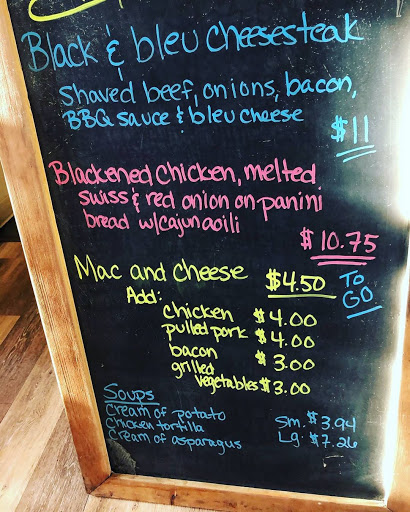 Black & bleu cheesesteak
Shaved beef, onions, bacon,
BBQ sauce & bleu cheese
$11
Blackened chicken, melted
swiss & red onion on panini
bread w/cajun aoili
$10.75
Mac and cheese $4.50 To GO
Add:
chicken $4.00
pulled pork $4.00
bacon $3.00
grilled
vegetables $3.00
Soups
Cream of potato Sm. $3.94
Chicken tortilla Lg $7.26
Cream of asparagus